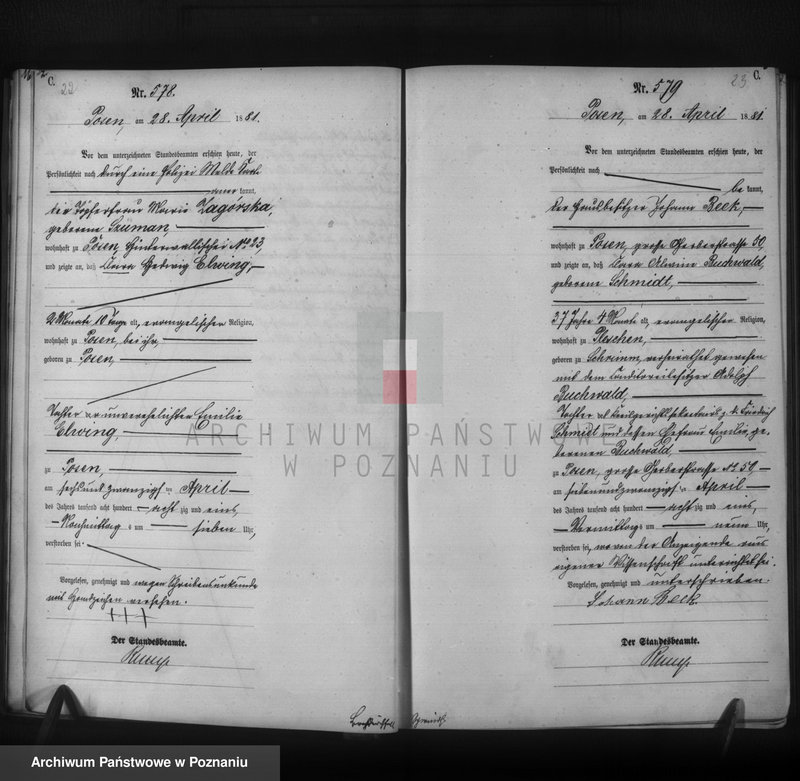 C.
22
Nr. 578.
Posen, am 28. April 1881.
Vor dem unterzeichneten Standesbeamten erschien heute, der
Persönlichkeit nach durch eine Polizei Melde Karte
kannt,
die Töpferfrau Maria Zagórska,
geborene Szuman
wohnhaft zu Posen, Hinterwallischei No 23,
und zeigte an, daß Clara Hedwig Elwing,
2 Monate 10 Tage alt, evangelischer Religion,
wohnhaft zu Posen, bei ihr,
geboren zu Posen,
Tochter der unverehelichten Emilie
Elwing,
zu Posen,
am sechsundzwanzigsten April
des Jahres tausend acht hundert achtzig und eins,
Nachmittags um sieben Uhr,
verstorben sei.
Vorgelesen, genehmigt und wegen Schreibensunkunde
mit Handzeichen versehen.
+++
Der Standesbeamte.
C.
23
Nr. 579
Posen, am 28. April 1881.
Vor dem unterzeichneten Standesbeamten erschien heute, der
Persönlichkeit nach
be kannt,
der Johann Beck,
wohnhaft zu Posen, große Gerberstrasse 50,
und zeigte an, daß Clara Alwine Buchwald,
geborene Schmidt,
37 Jahre 4 Monate alt, evangelischer Religion,
wohnhaft zu Pleschen,
geboren zu Schrimm, verheirathet gewesen
mit dem Conditoreibesitzer Adolph
Buchwald,
Tochter des Kreisgerichtssekretairs Friedrich
Schmidt und dessen Ehefrau Emilie ge
borenen Buchwald,
zu Posen, große Gerberstrasse No 50
am siebenundzwanzigsten April
des Jahres tausend acht hundert achtzig und eins,
Vormittags um neun Uhr,
verstorben sei, wovon der Anzeigende aus
eigener Wissenschaft unterrichtet sei.
Vorgelesen, genehmigt und unterschrieben.
Johann Beck
Der Standesbeamte.
ARCHIWUM PAŃSTWOWE
W POZNANIU
Archiwum Państwowe w Poznaniu